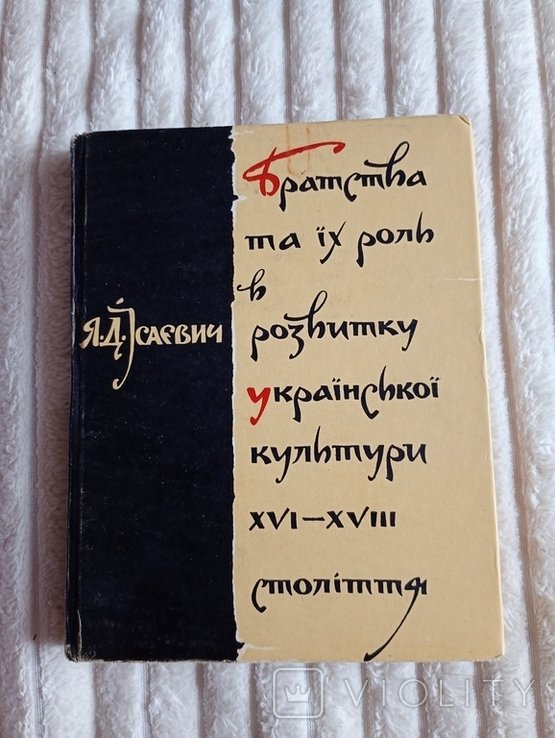 Я.Д.Ісаєвич
Братства
та їх роль
в
розвитку
української
культури
XVI—XVIII
століття
VIOLITY